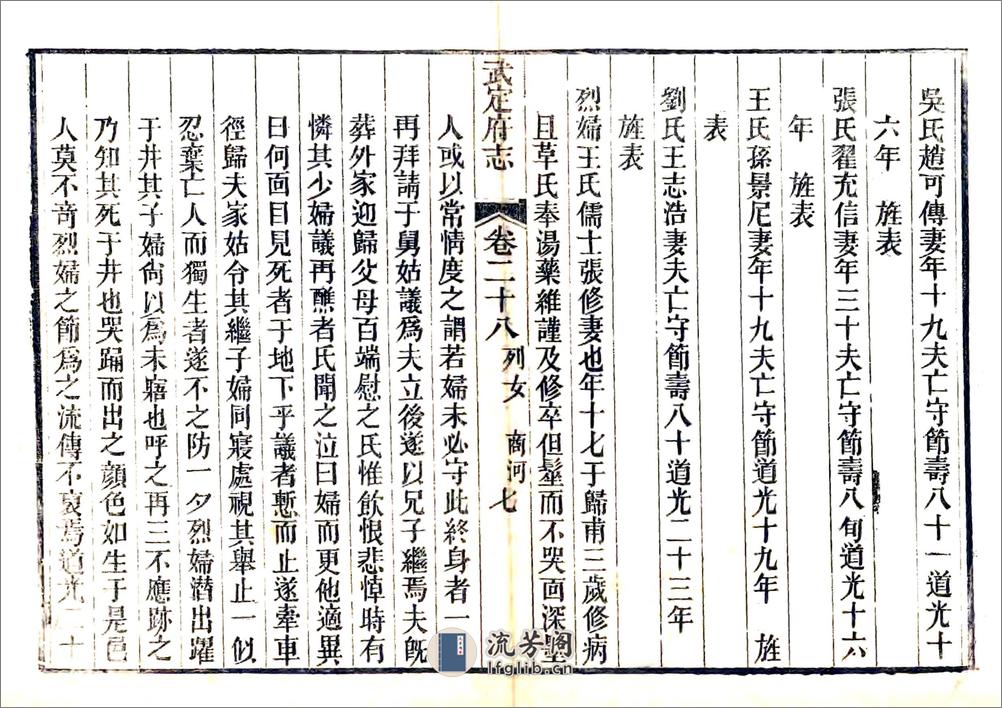 吳氏趙可傳妻年十九夫亡守節壽八十一道光十
六年　旌表
張氏翟充信妻年三十夫亡守節壽八旬道光十六
年　旌表
王氏孫景尼妻年十九夫亡守節道光十九年　旌
表
劉氏王志浩妻夫亡守節壽八十道光二十三年
旌表
烈婦王氏儒士張修妻也年十七于歸甫三歲修病
且革氏奉湯藥維謹及修卒但髽而不哭面深墨
武定府志　卷二十八　列女　商河　七
人或以常情度之謂若婦未必守此終身者一日
再拜請于舅姑議爲夫立後遂以兄子繼焉夫旣
葬外家迎歸父母百端慰之氏惟飲恨悲悼時有
憐其少婦議再醮者氏聞之泣曰婦而更他適異
曰何面目見死者于地下乎議者慙而止遂牽車
徑歸夫家姑令其繼子婦同寢處視其舉止一似
忍棄亡人而獨生者遂不之防一夕烈婦潛出躍
于井其子婦尙以爲未寤也呼之再三不應跡之
乃知其死于井也哭踊而出之顔色如生于是邑
人莫不奇烈婦之節爲之流傳不衰焉道光二十
流芳阁
lfglib.cn